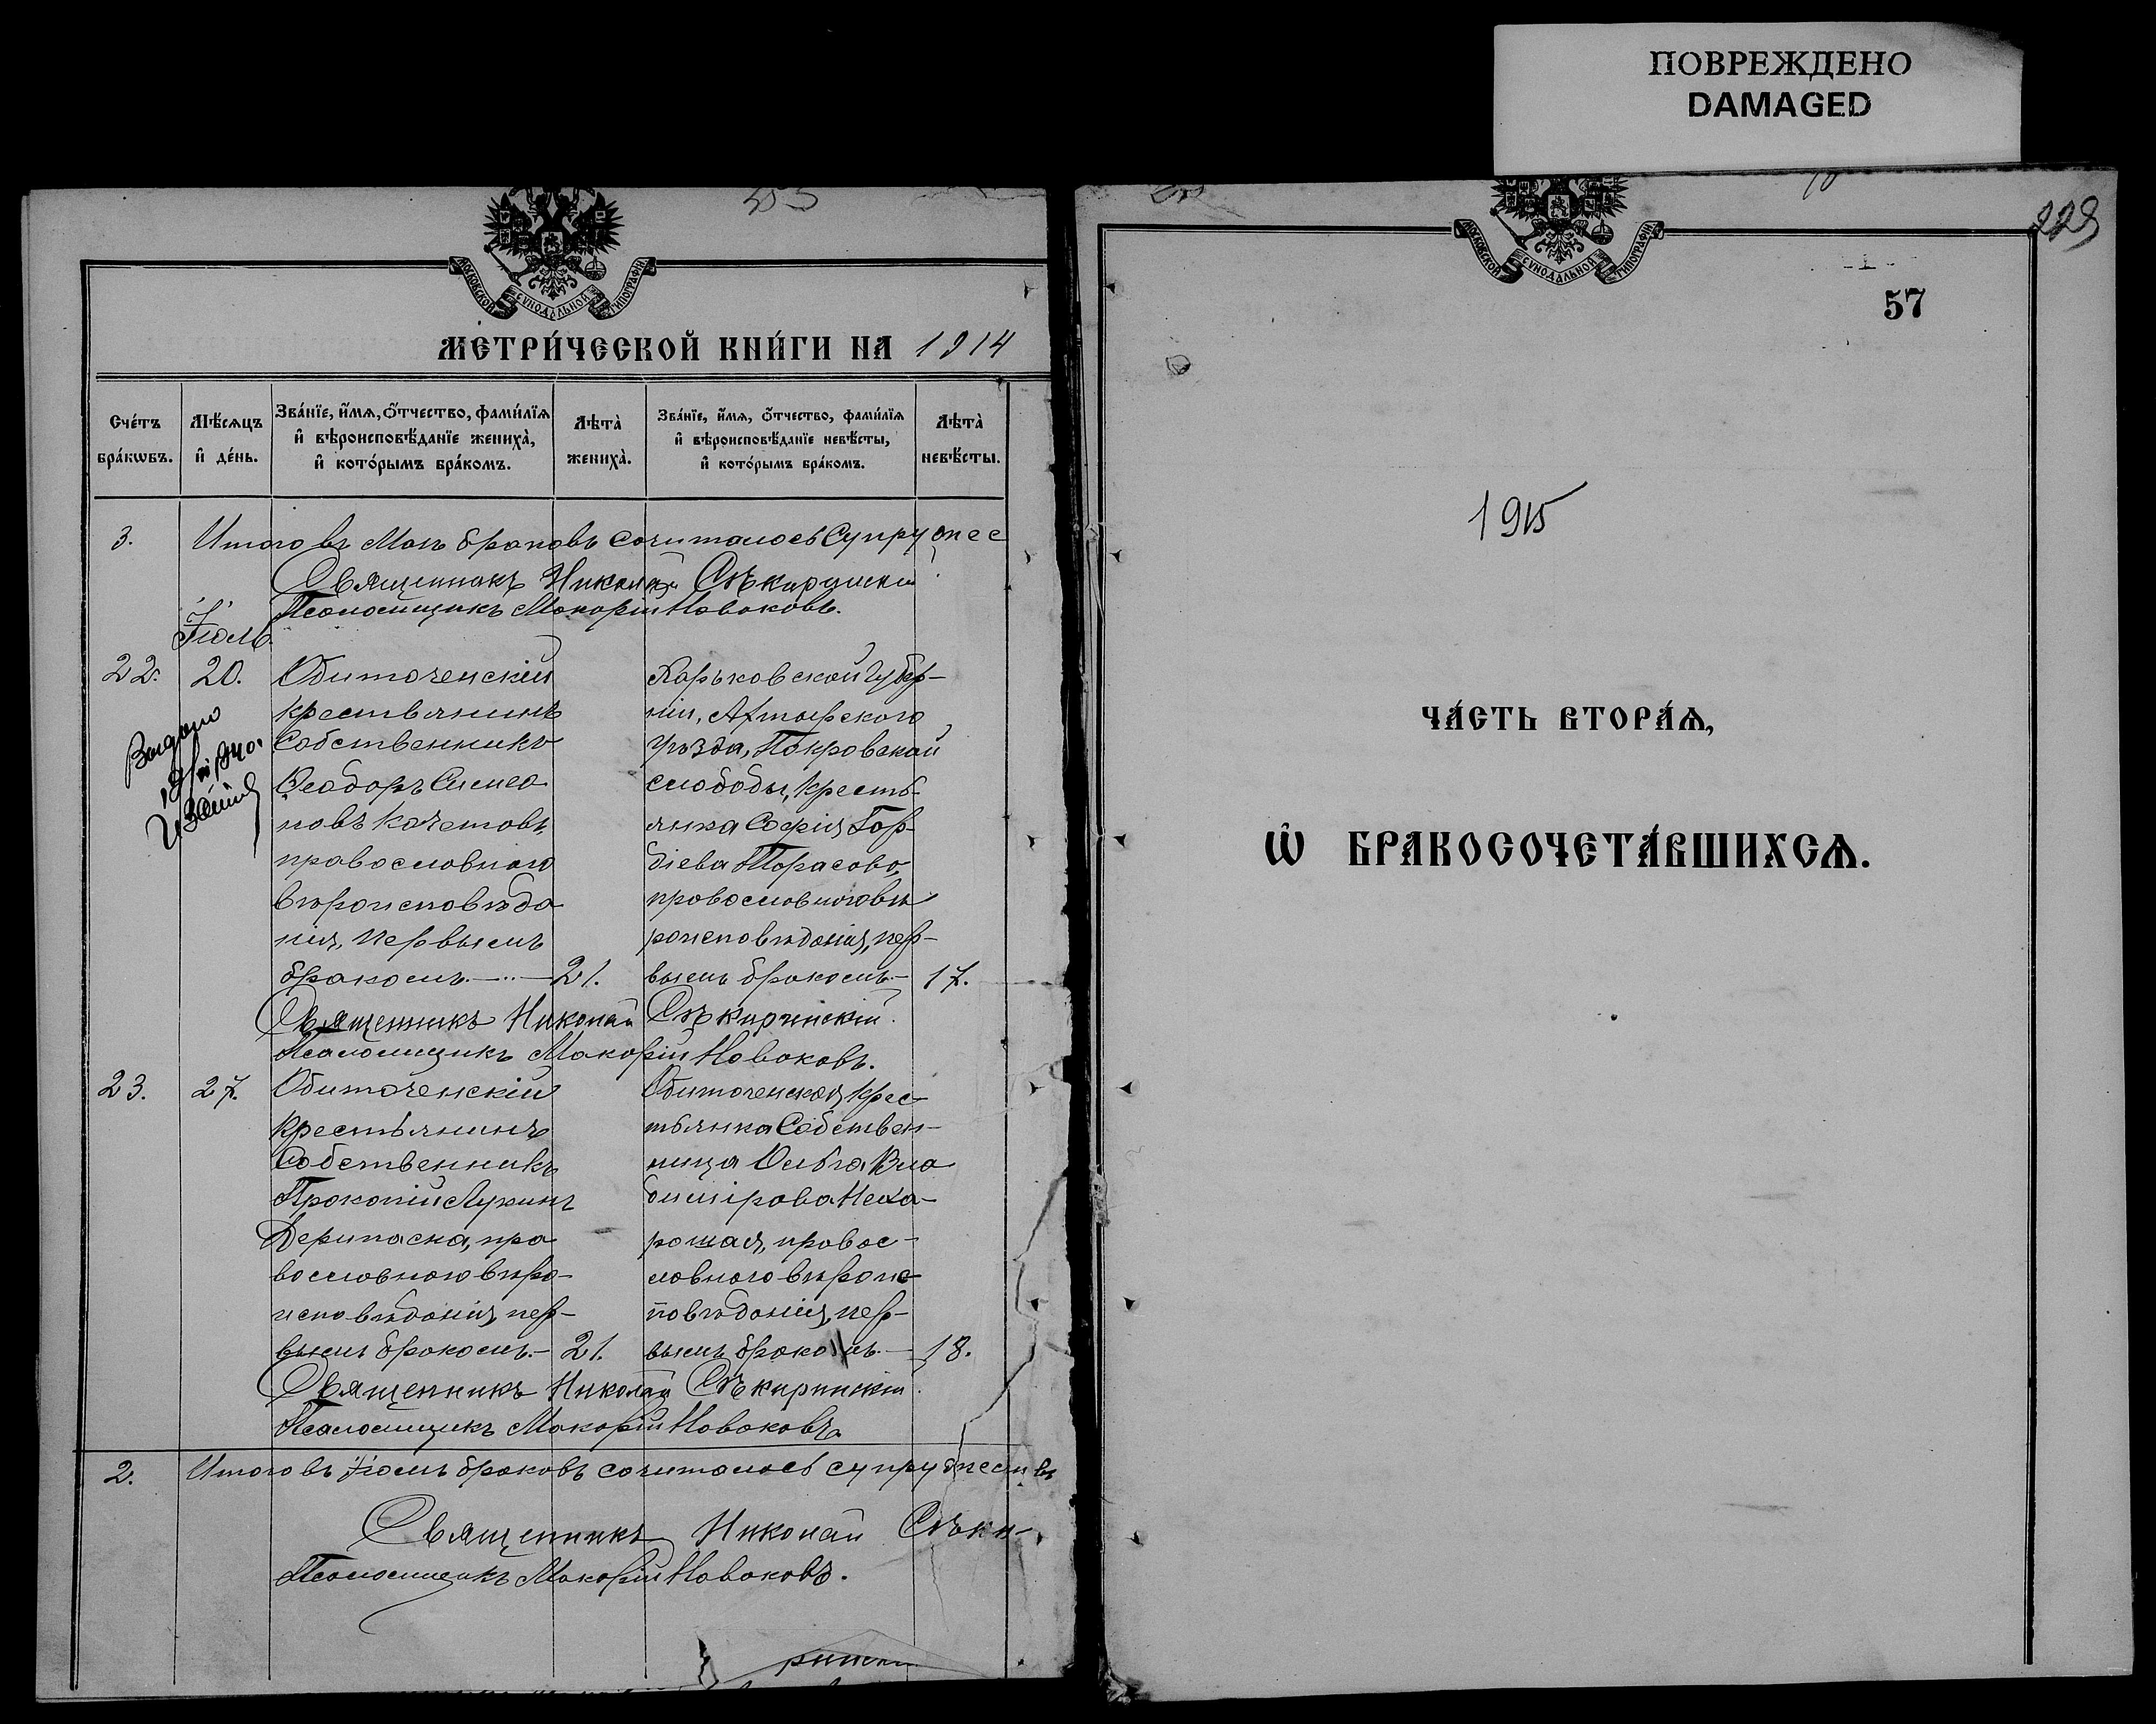 ПОВРЕЖДЕНО
DAMAGED
МОСКОВСКОЙ СУНОДАЛЬНОЙ ТИПОГРАФІИ
МЕТРИ́ЧЕСКОЙ КНИ́ГИ НА 1914
Сче́тъ бра́кѡвъ.
Мѣ́сѧцъ и҆ де́нь.
Зва́нїе, и҆́мѧ, ѻ҆́тчество, фами́лїѧ
и҆ вѣроисповѣ́данїе жениха̀,
и҆ кото́рымъ бра́комъ.
Лѣта̀ жениха̀.
Зва́нїе, и҆́мѧ, ѻ҆́тчество, фами́лїѧ
и҆ вѣроисповѣ́данїе невѣ́сты,
и҆ кото́рымъ бра́комъ.
Лѣта̀ невѣ́сты.
3. Итого въ Маѣ браковъ сочиталось супружес
Священникъ Николай
Псаломщикъ Макорій Новаковъ.
Іюль
22. 20.
Обиточенскій
крестьянинъ
Собственникъ
Ѳеодоръ Симео
новъ Кочетовъ
православного
вѣроисповѣда
нія, первымъ
бракомъ. 21.
Харьковской Губер-
ніи, Ахтырского
Уѣзда, Покровской
слободы, кресть-
янка Софія Гор-
діева Тарасова,
православного вѣ
роисповѣданія, пер-
вымъ бракомъ. 17.
Выдано
Священникъ Николай Сѣкиринскій.
Псаломщикъ Макорій Новаковъ.
23. 27.
Обиточенскій
крестьянинъ
Собственникъ
Прокопій Лукинъ
Дерипаска, пра
вославного вѣро-
исповѣданія, пер-
вымъ бракомъ. 21.
Обиточенская крес
тьянка Собствен-
ница Ольга Вла
димірова Неха-
рошая, правос-
лавного вѣроис
повѣданія, пер-
вымъ бракомъ. 18.
Священникъ Николай Сѣкиринскій.
Псаломщикъ Макорій Новаковъ.
2. Итого въ Іюлѣ браковъ сочиталось супружествъ
Священникъ Николай Сѣки-
Псаломщикъ Макорій Новаковъ.
МОСКОВСКОЙ СУНОДАЛЬНОЙ ТИПОГРАФІИ
57
1915
ЧА́СТЬ ВТОРА́Ѧ,
Ѡ҆ БРАКОСОЧЕТА́ВШИХСѦ.